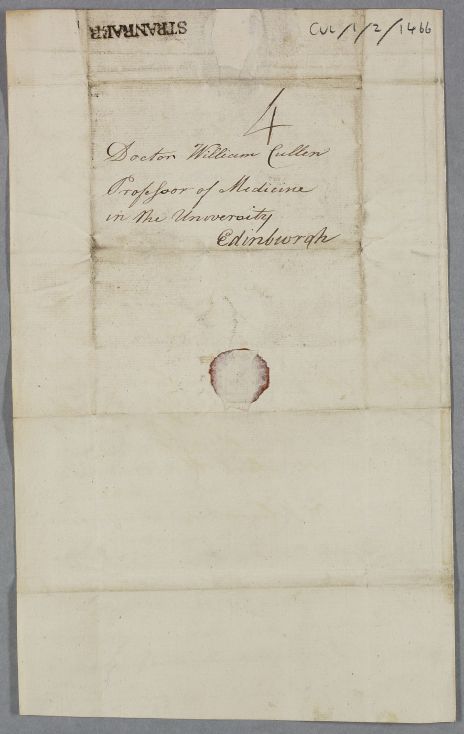 STRANRAER
CUL/1/2/1466
4
Doctor William Cullen
Professor of Medicine
in the University
Edinburgh